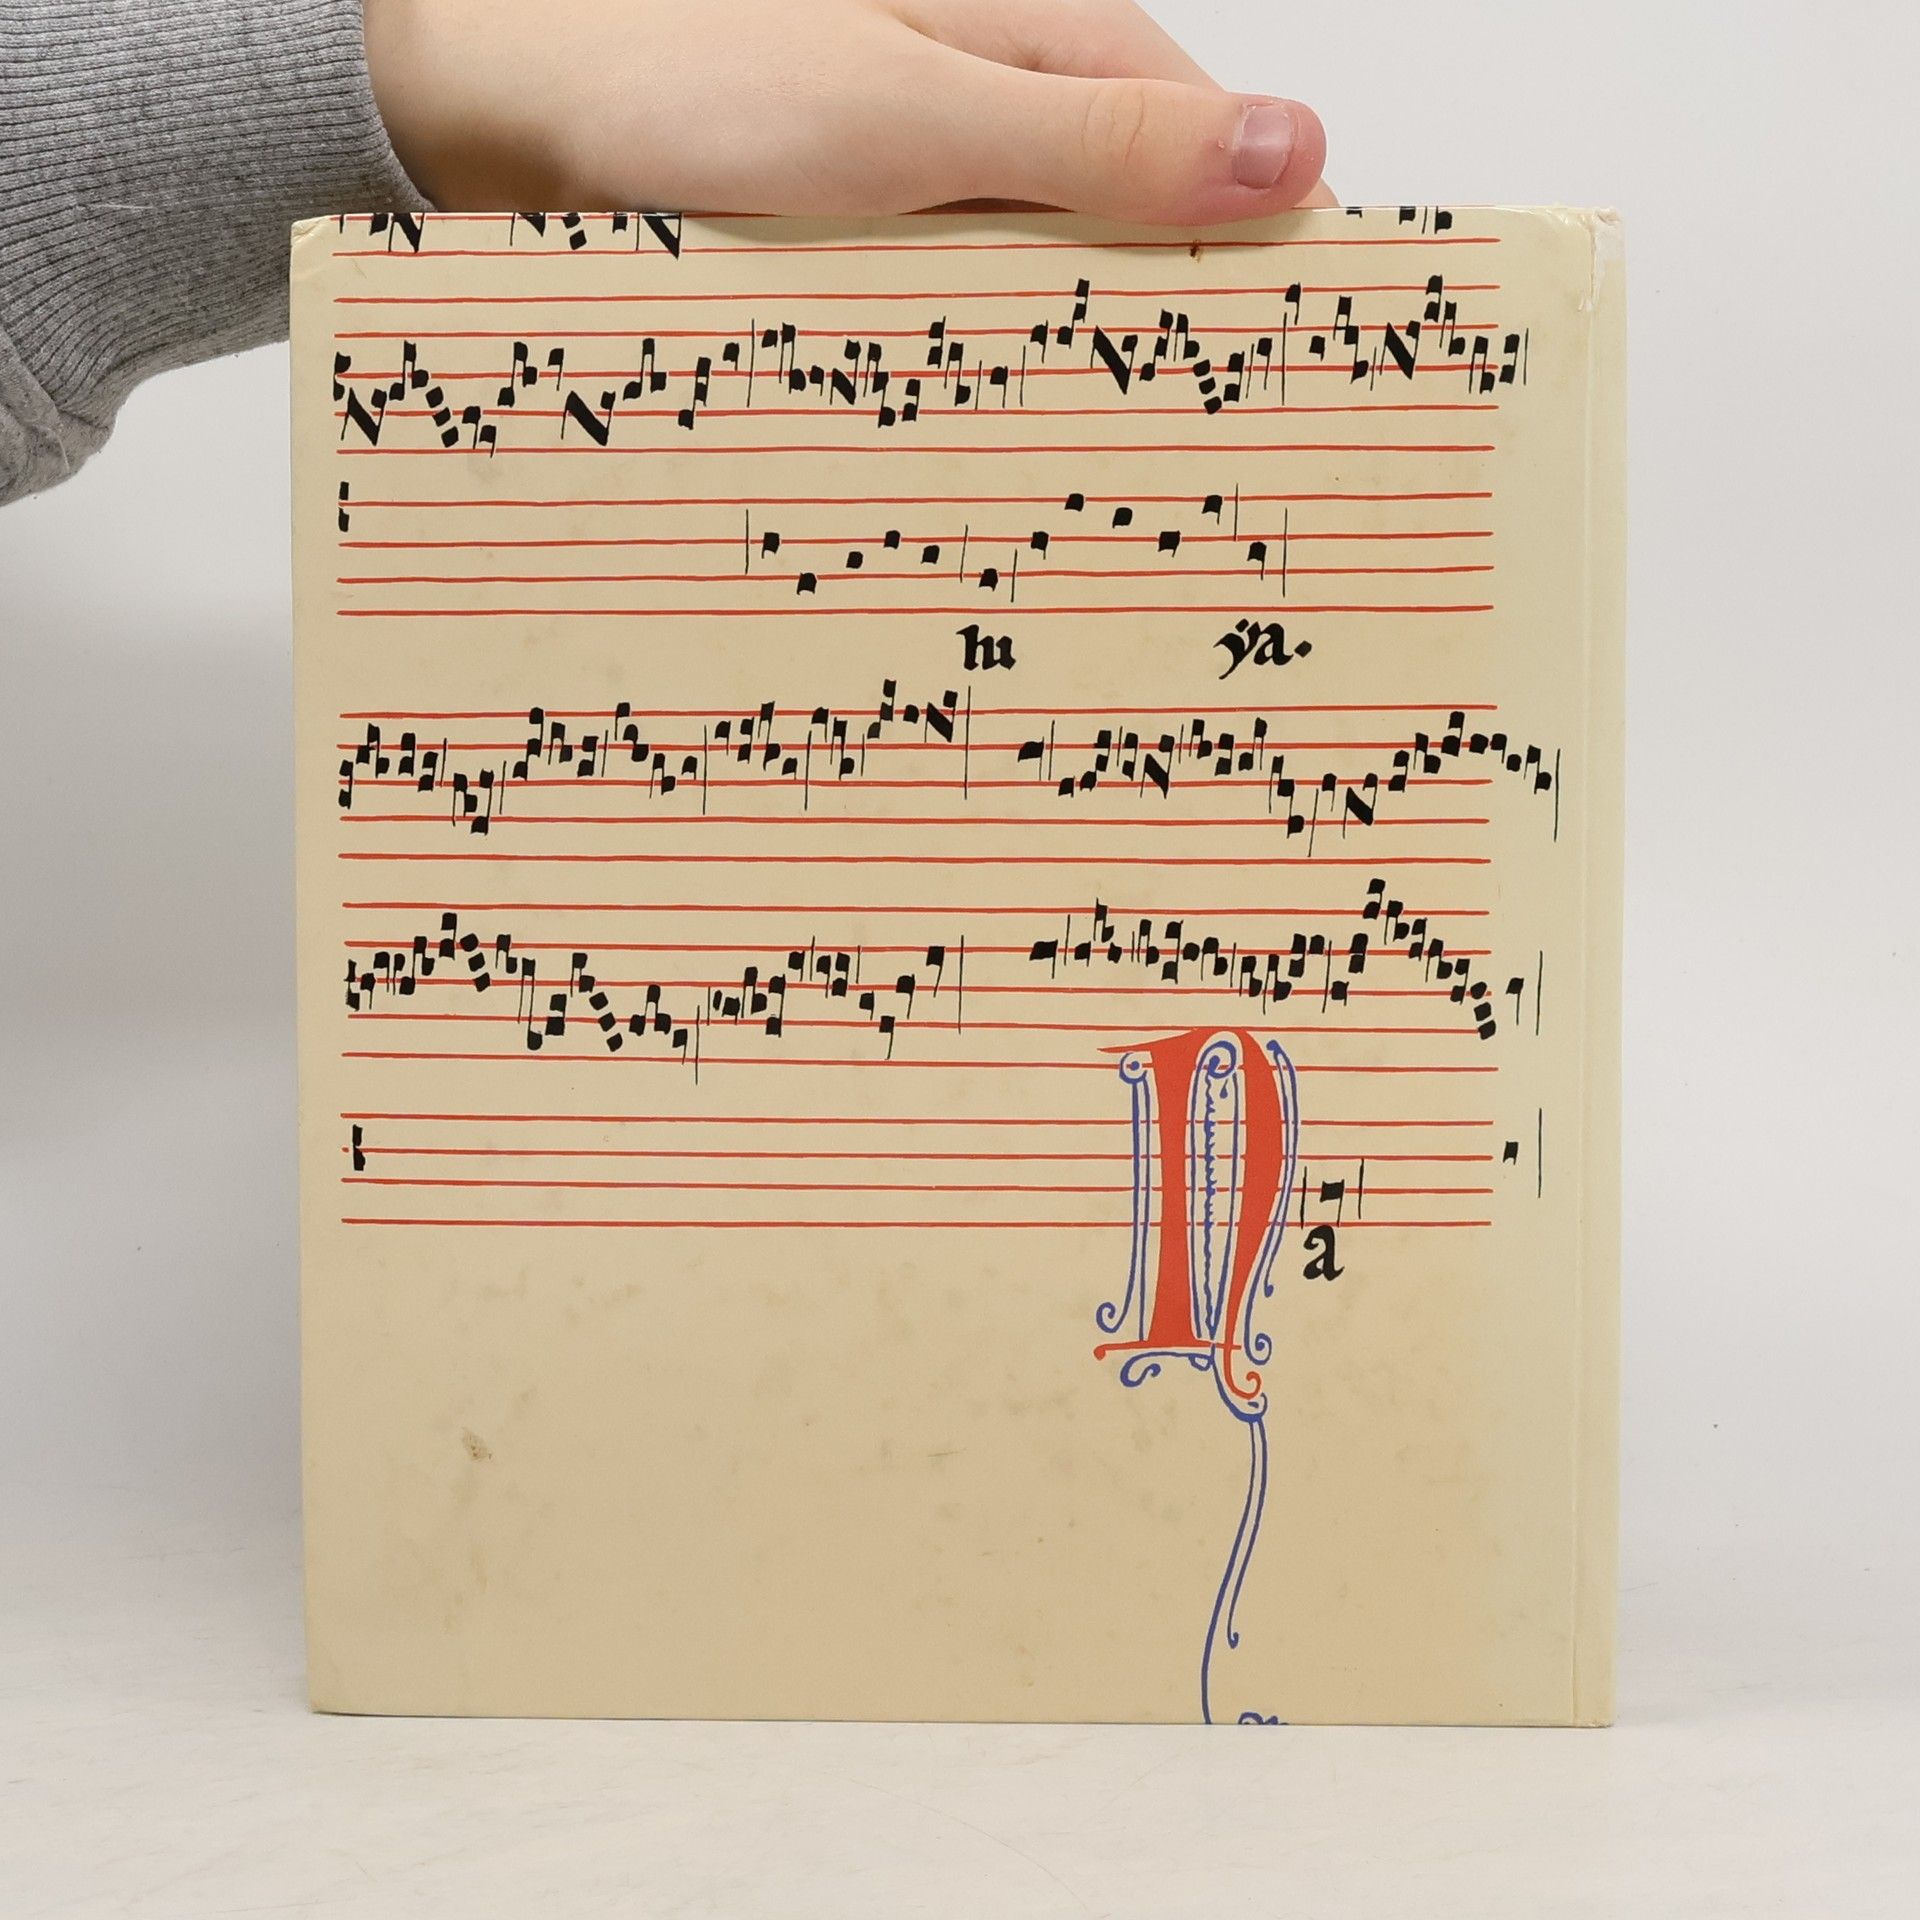 lu ÿa.
Na